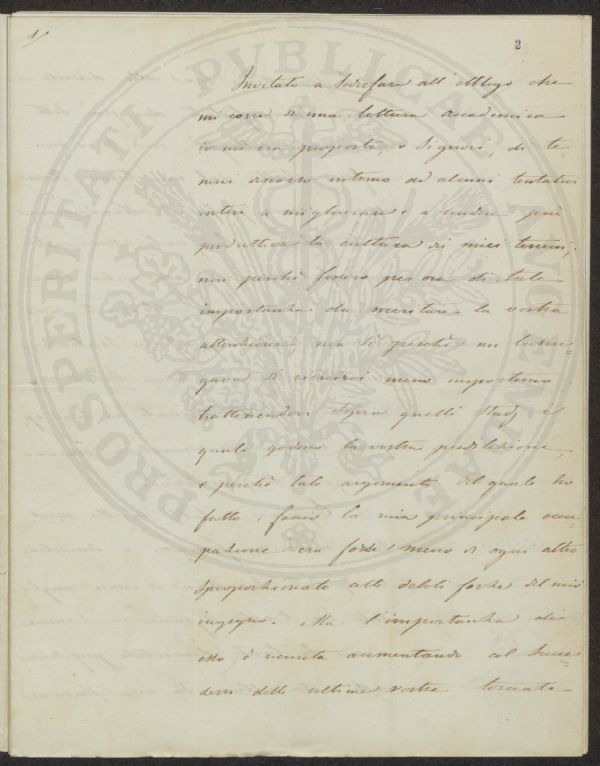 1/
2
Invitato a sodisfare all'obbligo che
mi corre di una lettura accademica
io mi era proposto, o Signori, di te-
nervi discorso intorno ad alcuni tentativi
intesi a migliorare e a rendere più
produttiva la cultura di miei terreni;
non perchè fossero per ora di tale
importanza da meritare la vostra
attenzione, ma sì perchè mi lusin-
gava di riescirvi meno importuno
trattenendovi sopra quelli studj i
quali godono la vostra predilezione,
e perchè tale argomento del quale ho
fatto, e faccio la mia principale occu-
pazione era forse meno di ogni altro
sproporzionato alle deboli forze del mio
ingegno. Ma l'importanza di
esso è venuta aumentando col succe-
dersi delle ultime vostre tornate
PROSPERITATI PUBLICAE AUGENDAE